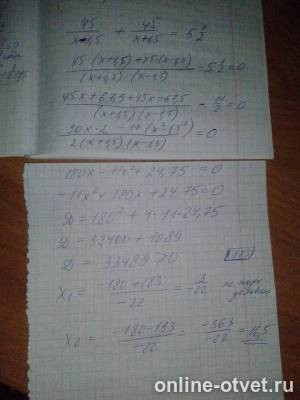 45/(x-1,5) + 45/(x+1,5) = 5 1/2
(45(x+1,5)+45(x-1,5))/((x+1,5)(x-1,5)) - 5 1/2 = 0
(45x+67,5+45x-67,5)/((x+1,5)(x-1,5)) - 11/2 = 0
(90x·2 - 11(x²-1,5²))/(2(x+1,5)(x-1,5)) = 0
180x - 11x² + 24,75 = 0
-11x² + 180x + 24,75 = 0
D = 180² + 4·11·24,75
D = 32400 + 1089
D = 33489 > 0
183
x₁ = (-180+183)/-22 = 3/-22 не
x₂ = (-180-183)/-22 = -363/-22 = 16,5
online-otvet.ru